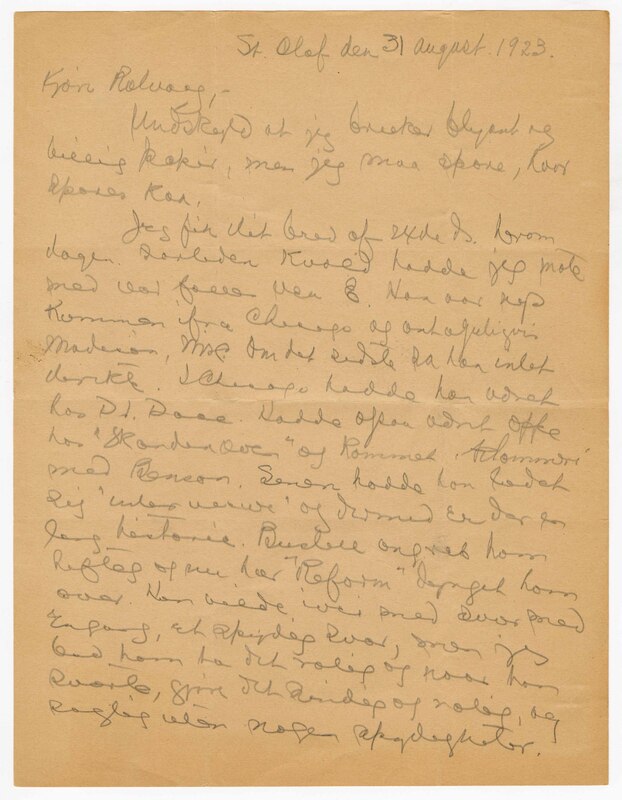 St. Olaf den 31 August. 1923.
Kjøre Rolvaag,-
Undskyld at jeg bruker blyant og
billig papir, men jeg maa spare, hvor
spares kan.
Jeg fik dit brev af 24de ds. herom
dagen. Forleden kveld hadde jeg møte
med vor felles ven B. Han var nys
kommen ifra Chicago og antageligvis
Madison, Wis. Om det sidste sa han intet
direkte. I Chicago hadde han været
hos Dr. Daae. Hadde ogsaa været oppe
hos "Skandinaven" og kommet
med Benson. Senere hadde han ladet
sig "interviewe" og dermed er der en
lang historie. angreb ham
heftig og nu har "Reform" dynget ham
over. Han vilde ivei med svar med
Engang, et spydig svar, men jeg
bad ham ta det rolig og naar han
svarte, gjøre det sindig og rolig, og
saglig uten nogen spydigheter.